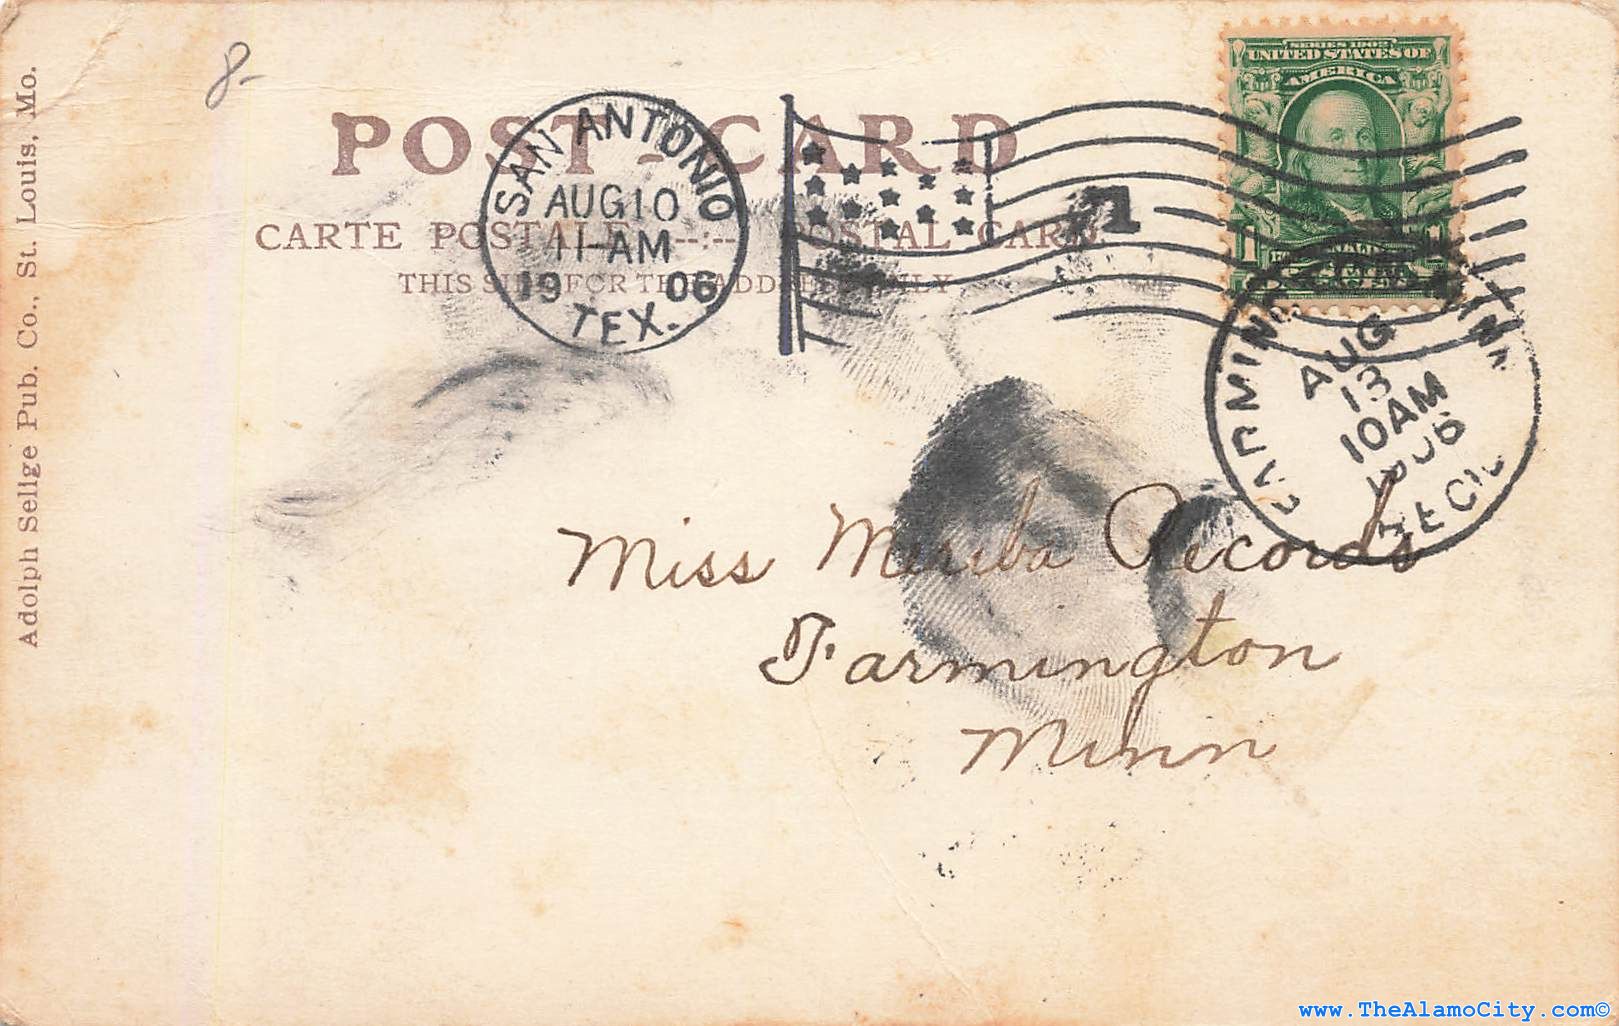 8-
Adolph Selige Pub. Co., St. Louis, Mo.
POST-CARD
CARTE POSTALE --:-- POSTAL CARD
THIS SIDE FOR THE ADDRESS ONLY
SAN ANTONIO
AUG 10
11-AM
1906
TEX.
1
SERIES 1902
UNITED STATES OF
AMERICA
1 1
AUG
13
10AM
1906
REC'D
Miss Meriba Records
Farmington
Minn
www.TheAlamoCity.com©